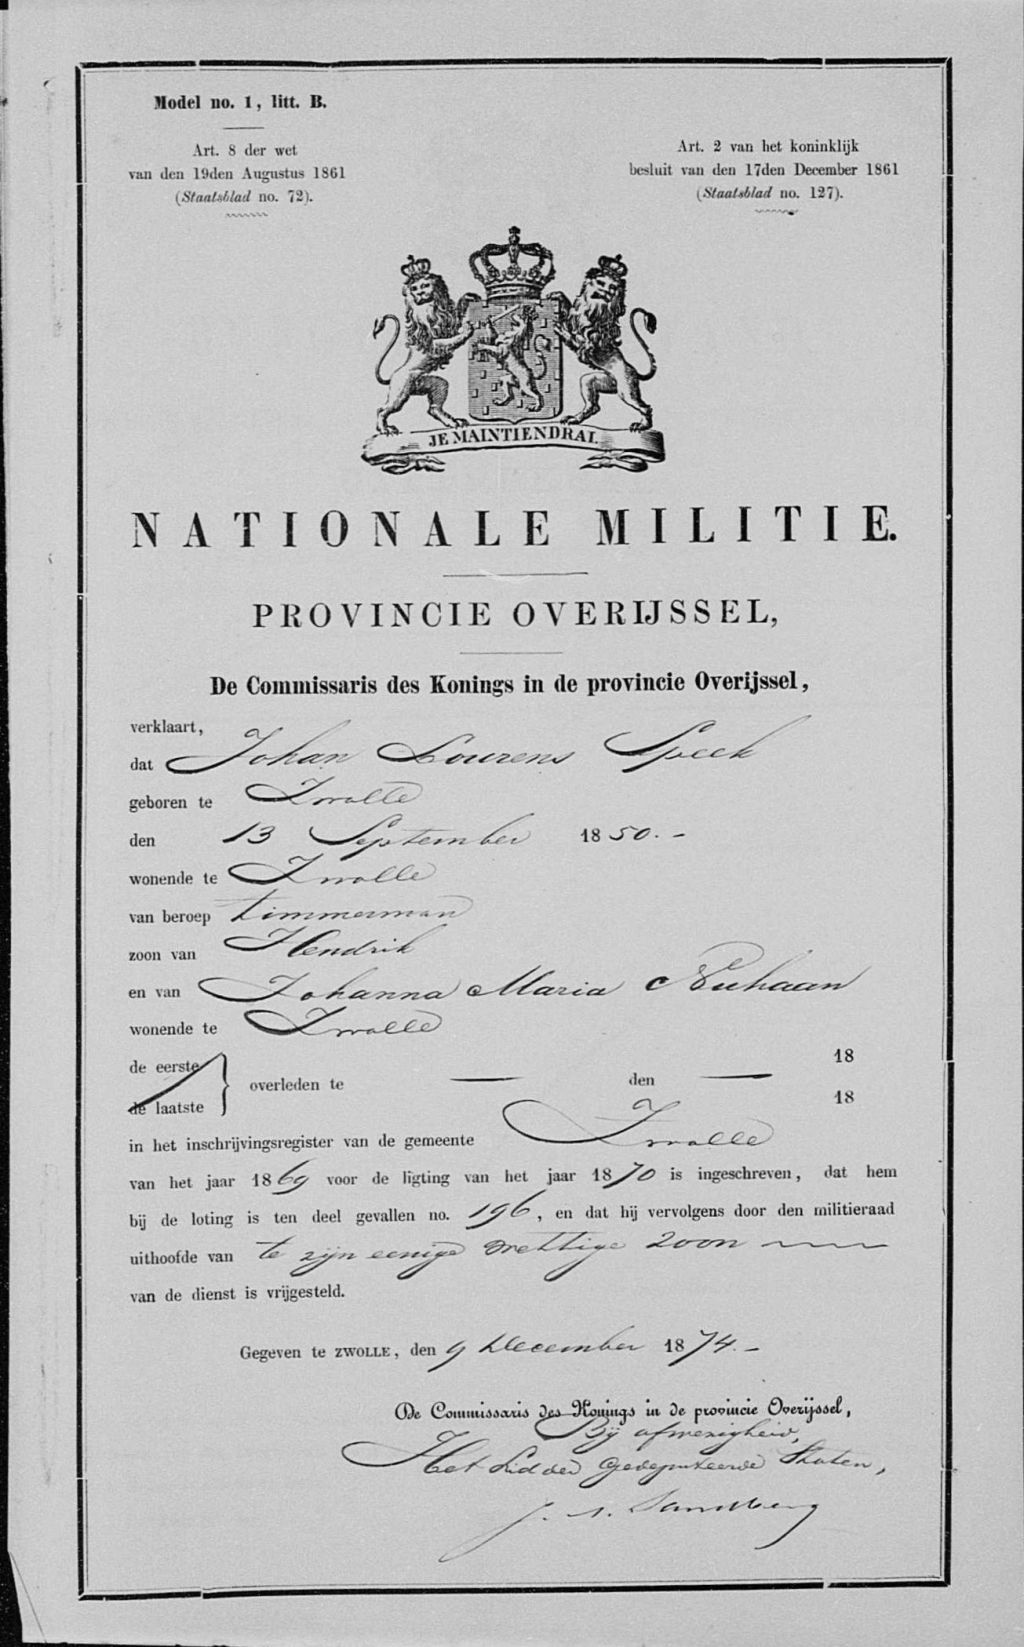 Model no. 1, litt. B.
Art. 8 der wet
van den 19den Augustus 1861
(Staatsblad no. 72).
Art. 2 van het koninklijk
besluit van den 17den December 1861
(Staatsblad no. 127).
JE MAINTIENDRAI.
NATIONALE MILITIE.
PROVINCIE OVERIJSSEL,
De Commissaris des Konings in de provincie Overijssel,
verklaart,
dat Johan Lourens Speek
geboren te Zwolle
den 13 September 1850.-
wonende te Zwolle
van beroep timmerman
zoon van Hendrik
en van Johanna Maria Nuhaan
wonende te Zwolle
de eerste
de laatste
} overleden te — den — 18
18
in het inschrijvingsregister van de gemeente Zwolle
van het jaar 1869 voor de ligting van het jaar 1870 is ingeschreven, dat hem
bij de loting is ten deel gevallen no. 196, en dat hij vervolgens door den militieraad
uithoofde van te zijn eenige wettige zoon
van de dienst is vrijgesteld.
Gegeven te ZWOLLE, den 9 December 1874.-
De Commissaris des Konings in de provincie Overijssel,
Bij afwezigheid,
Het Lid der Gedeputeerde Staten,
J. A. Sandberg